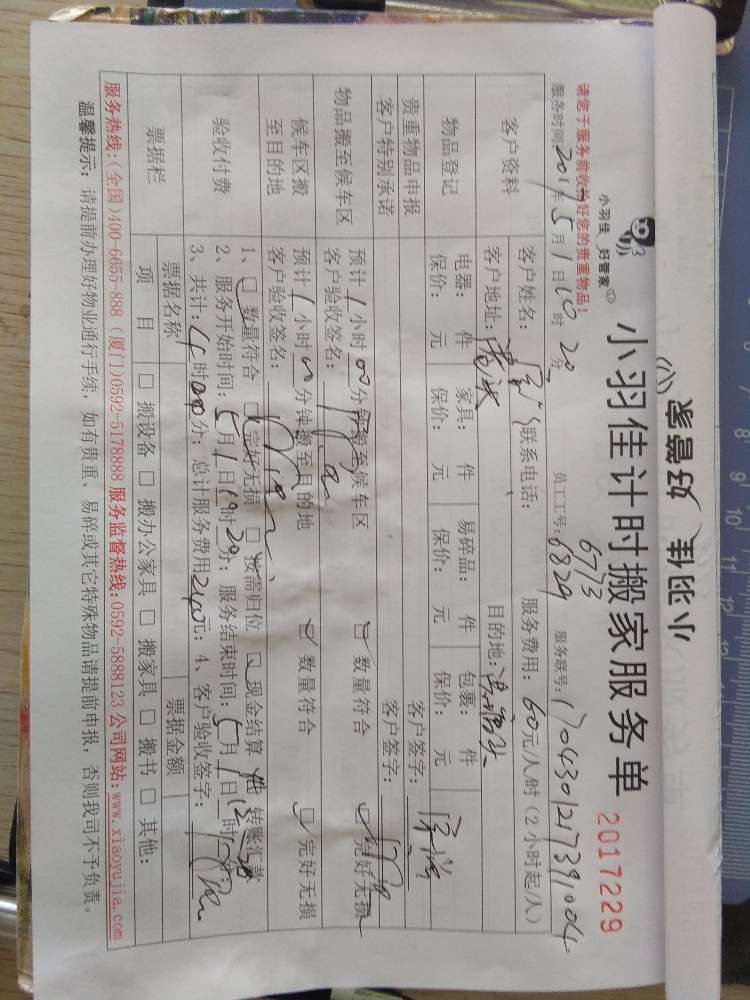 小羽佳 好管家
小羽佳 好管家
小羽佳计时搬家服务单
2017229
请您于服务前收拾好您的贵重物品!
6773
服务时间2017年5月1日10时20分 员工工号:6829 服务联号:170430121739004
客户资料
客户姓名: 联系电话: 服务费用:60元/人/时(2小时起/人)
客户地址: 目的地:
物品登记
电器: 件 家具: 件 易碎品: 件 包裹: 件
保价: 元 保价: 元 保价: 元 保价: 元
贵重物品申报 客户签字:
客户特别承诺 客户签字:
物品搬至候车区
预计1小时00分钟搬至候车区 数量符合 完好无损
客户验收签名:
候车区搬至目的地
预计1小时00分钟搬至目的地 数量符合 完好无损
客户验收签名:
验收付费
1、 数量符合 完好无损 按需归位 现金结算 转账汇款
2、服务开始时间:5月1日 时20分;服务结束时间:5月1日 时
3、共计:4时00分;总计服务费用240元;4、客户验收签字:
票据栏
票据名称 票据金额
项目 □搬设备 □搬办公家具 □搬家具 □搬书 □其他:
服务热线:(全国)400-6655-888 (厦门)0592-5178888 服务监督热线:0592-5888123 公司网站:www.xiaoyujia.com
温馨提示:请提前办理好物业通行手续,如有贵重、易碎或其它特殊物品请提前申报,否则我司不予负责。